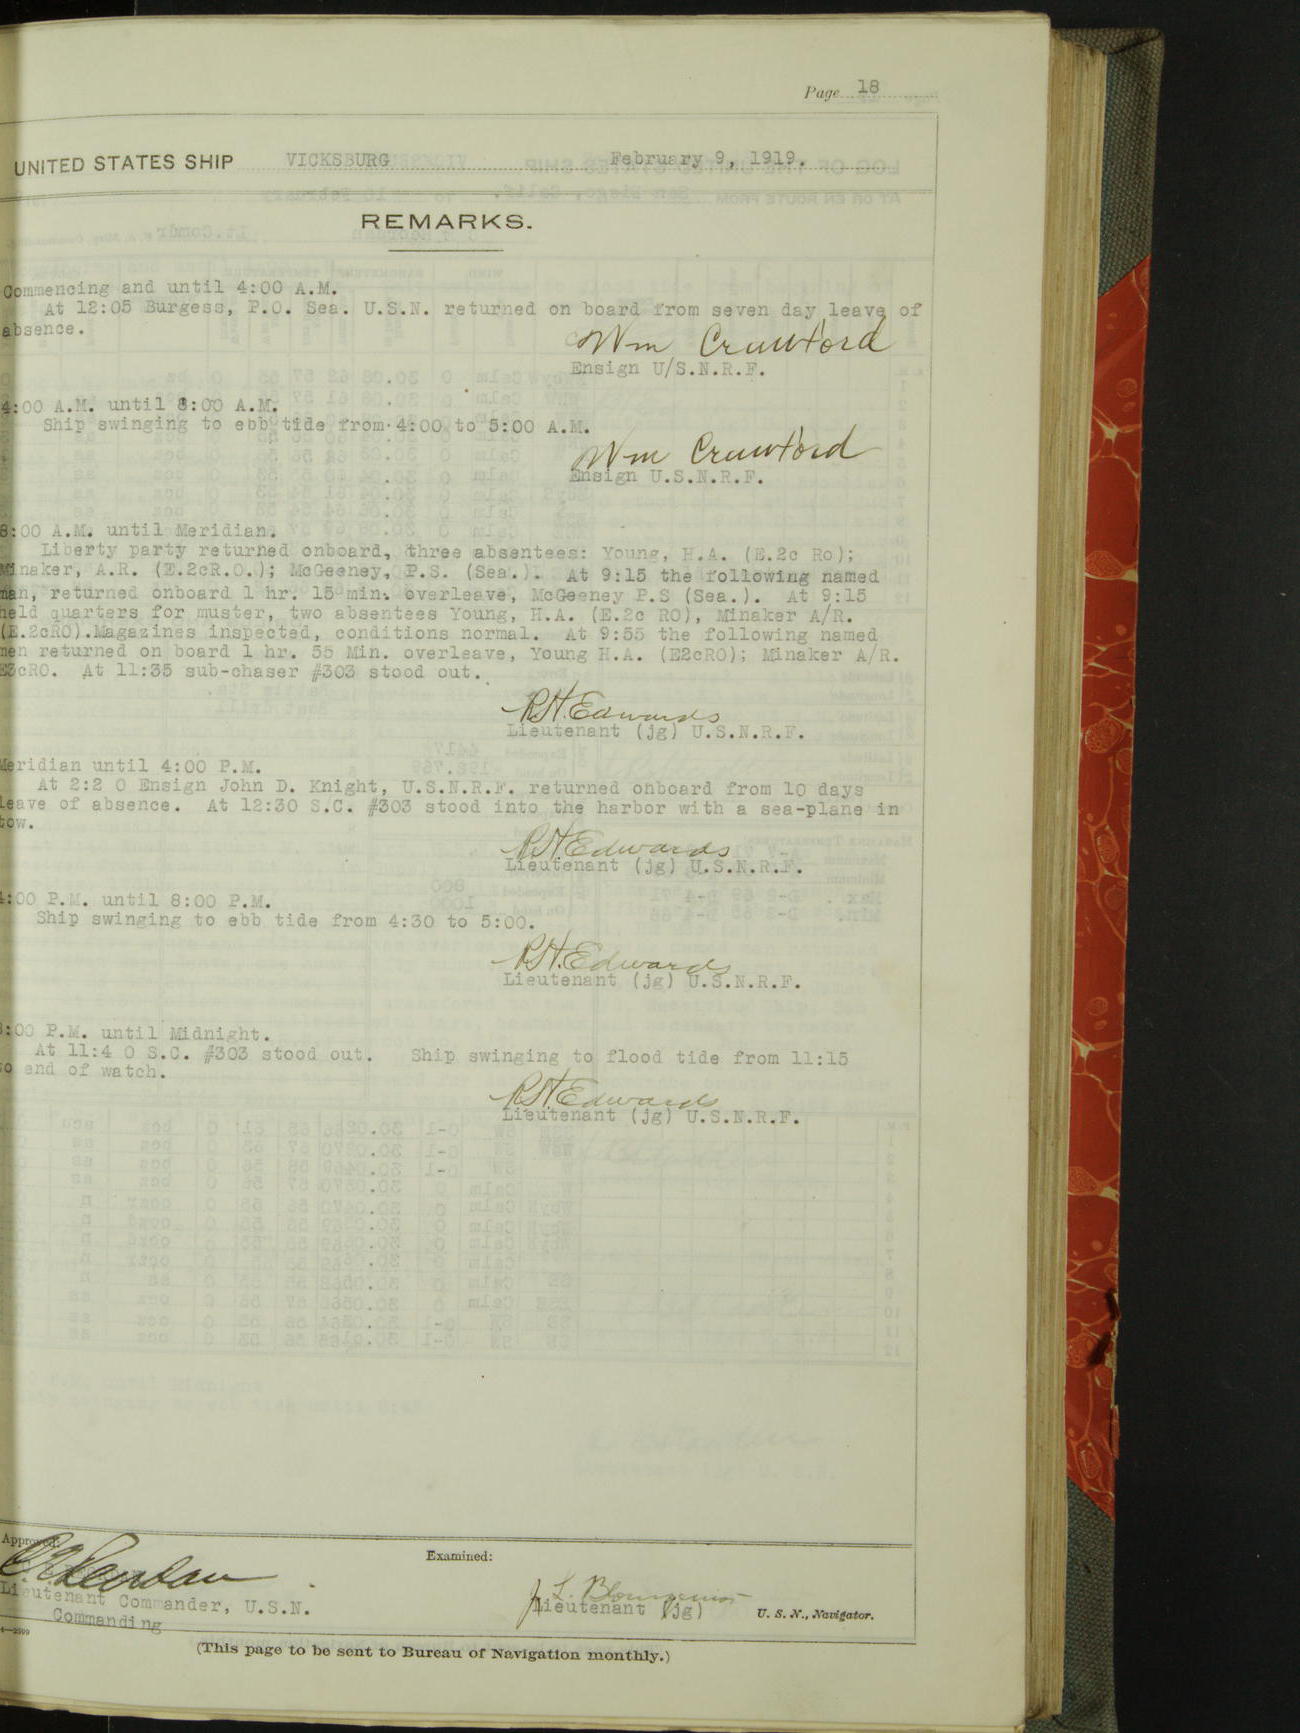 Page 18
UNITED STATES SHIP VICKSBURG February 9, 1919.
REMARKS.
Commencing and until 4:00 A.M.
At 12:05 Burgess, P.O. Sea. U.S.N. returned on board from seven day leave of
absence.
Wm Crawford
Ensign U/S.N.R.F.
4:00 A.M. until 8:00 A.M.
Ship swinging to ebb tide from 4:00 to 5:00 A.M.
Wm Crawford
Ensign U.S.N.R.F.
8:00 A.M. until Meridian.
Liberty party returned onboard, three absentees: Young, H.A. (E.2c Ro);
Minaker, A.R. (E.2cR.O.); McGeeney, P.S. (Sea.). At 9:15 the following named
man, returned onboard 1 hr. 15 min. overleave, McGeeney P.S (Sea.). At 9:15
held quarters for muster, two absentees Young, H.A. (E.2c RO), Minaker A/R.
(E.2cRO).Magazines inspected, conditions normal. At 9:55 the following named
men returned on board 1 hr. 55 Min. overleave, Young H.A. (E2cRO); Minaker A/R.
E3cRO. At 11:35 sub-chaser #303 stood out.
R.H. Edwards
Lieutenant (jg) U.S.N.R.F.
Meridian until 4:00 P.M.
At 2:2 0 Ensign John D. Knight, U.S.N.R.F. returned onboard from 10 days
leave of absence. At 12:30 S.C. #303 stood into the harbor with a sea-plane in
tow.
R.H. Edwards
Lieutenant (jg) U.S.N.R.F.
4:00 P.M. until 8:00 P.M.
Ship swinging to ebb tide from 4:30 to 5:00.
R.H. Edwards
Lieutenant (jg) U.S.N.R.F.
8:00 P.M. until Midnight.
At 11:4 0 S.C. #303 stood out. Ship swinging to flood tide from 11:15
to end of watch.
R.H. Edwards
Lieutenant (jg) U.S.N.R.F.
Approved:
Examined:
Lieutenant Commander, U.S.N.
Commanding
Lieutenant (jg) U. S. N., Navigator.
(This page to be sent to Bureau of Navigation monthly.)